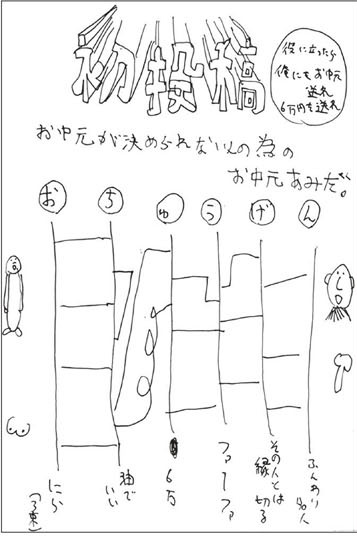 初投稿
役に立ったら
俺にもお中元
送れ
6万円を送れ
お中元が決められない人の為の
お中元あみだ。
お ち ゅ う げ ん
にら
(3束)
油で
いい
6万
ファーファ
その人とは
縁切る
ふんわり
名人